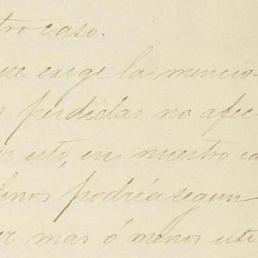 tro caso.
ue exige la mencio-
s perdidas no afec
en nuestro ca
linos podría segun
er mas ó menos uti